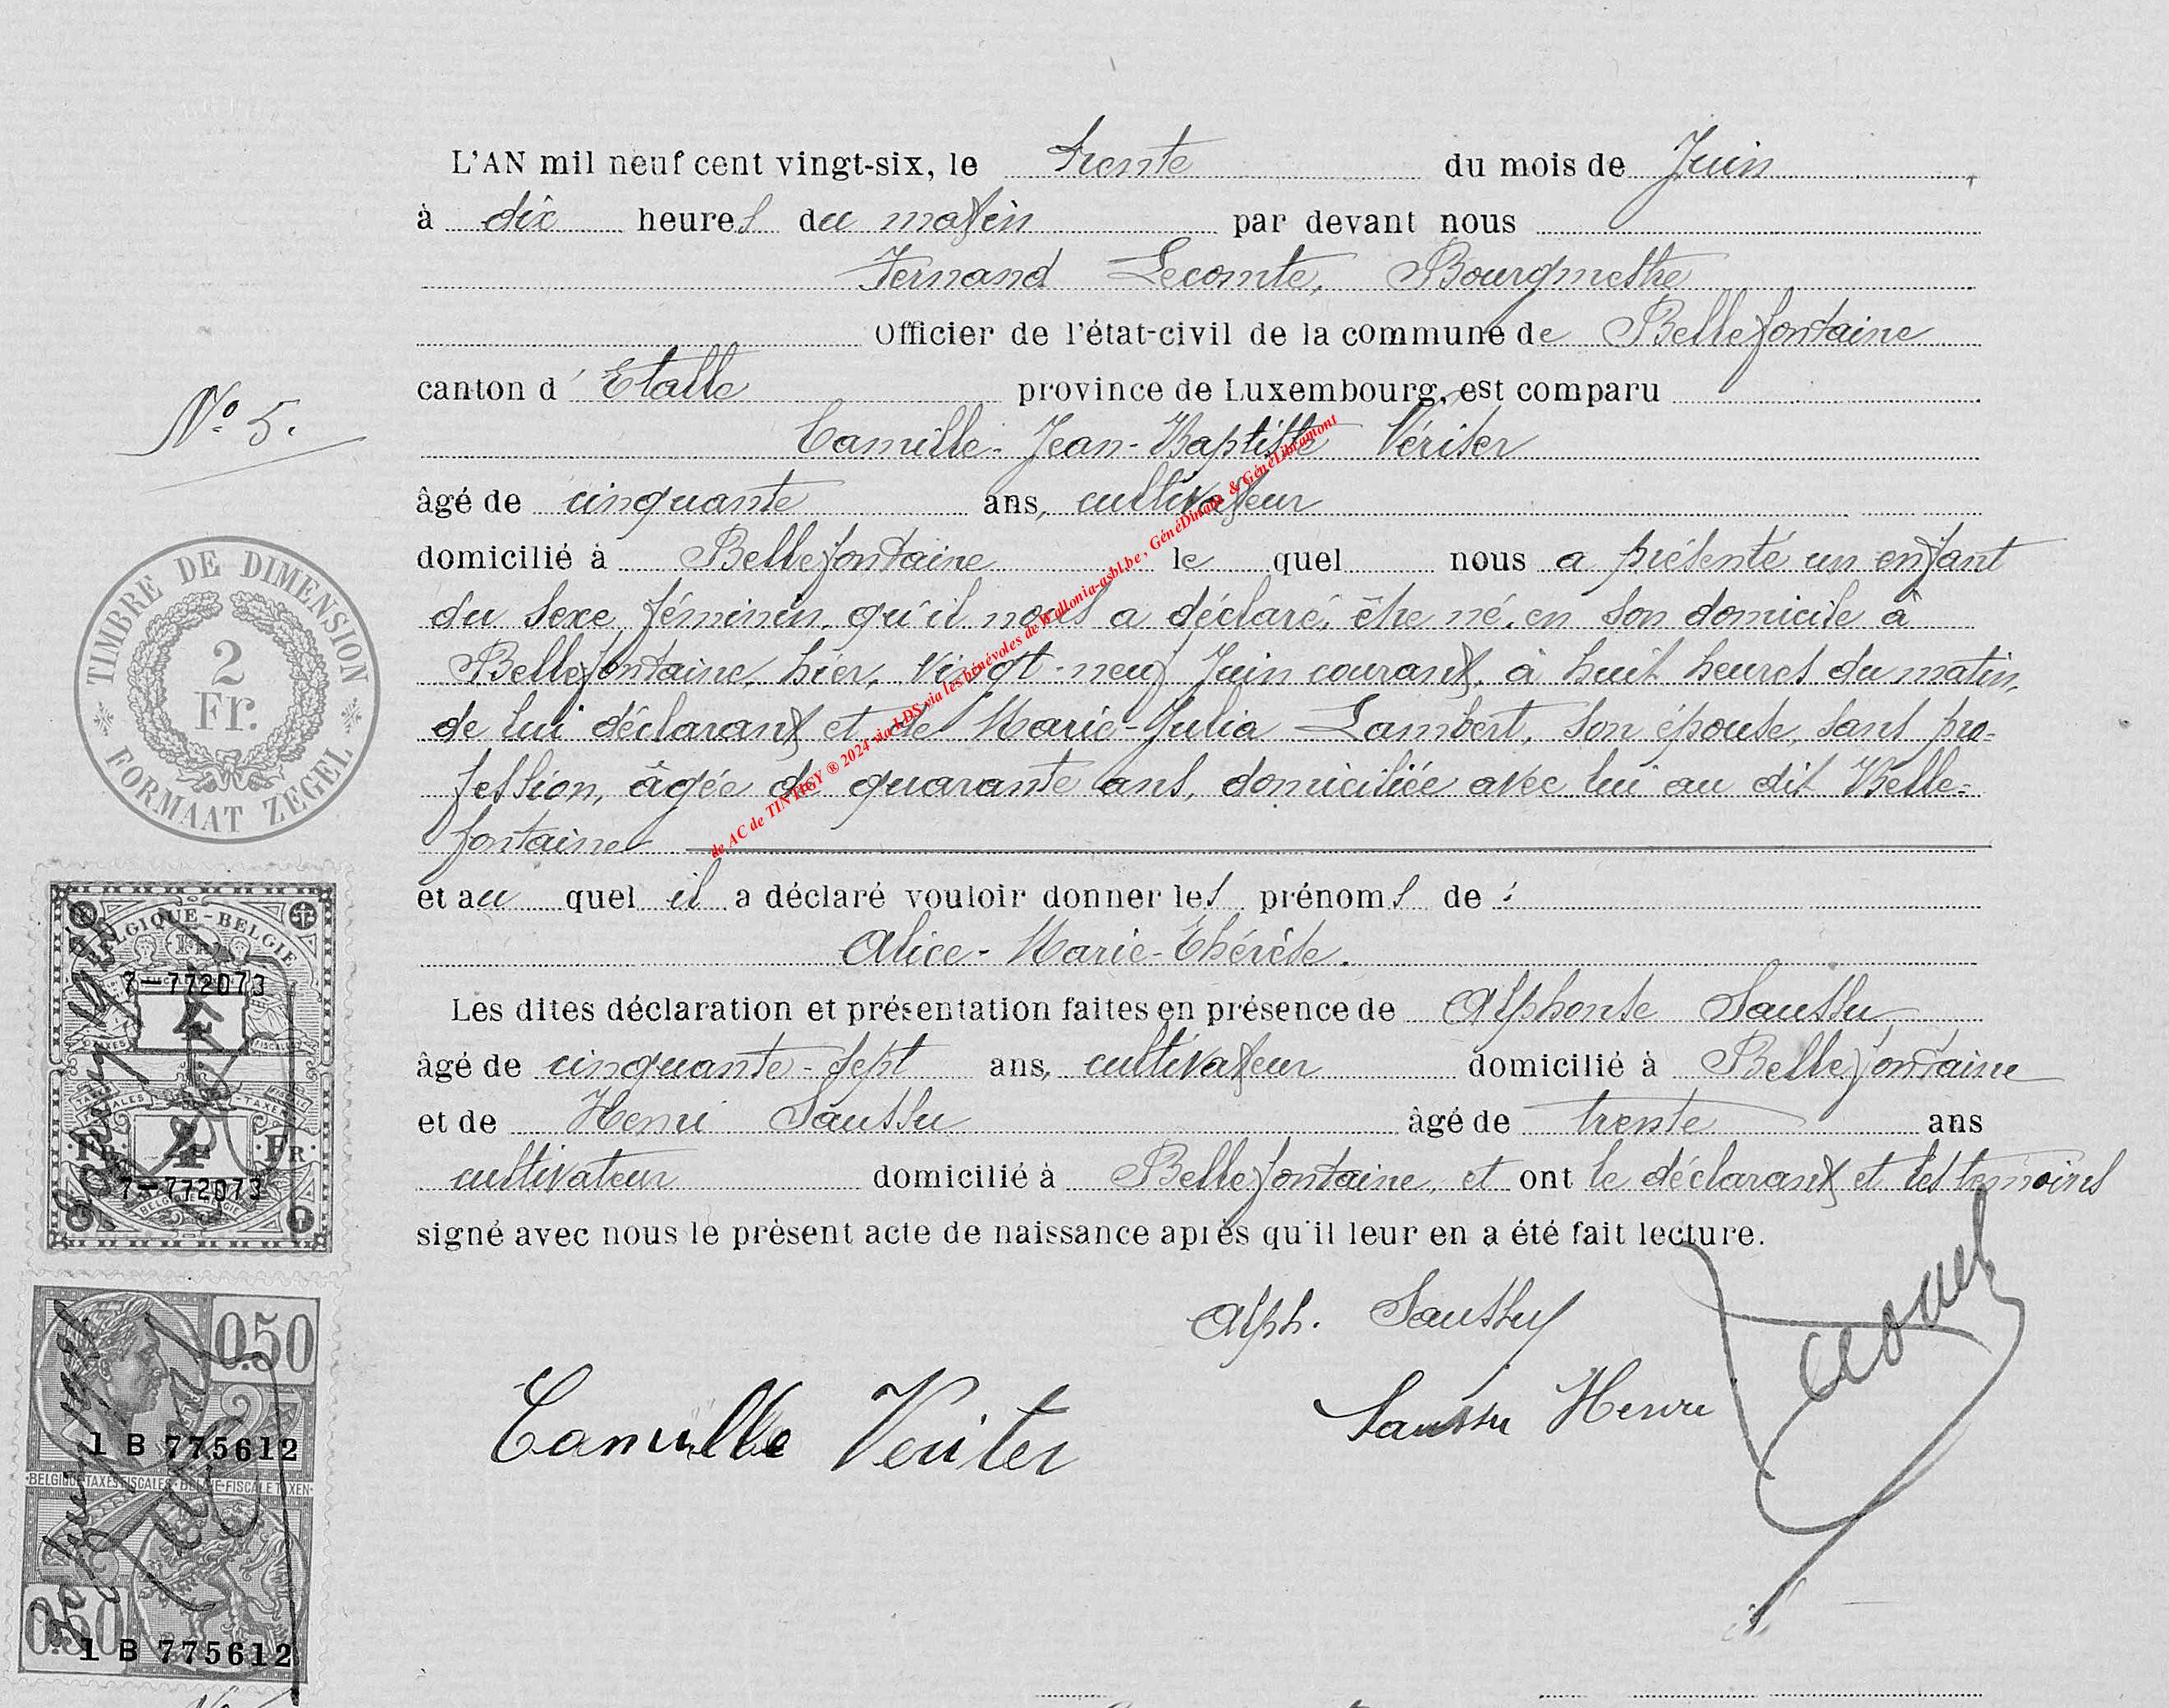 L'AN mil neuf cent vingt-six, le trente du mois de Juin
à dix heures du matin par devant nous
Fernand Lecomte, Bourgmestre
Officier de l'état-civil de la commune de Bellefontaine
canton d'Etalle province de Luxembourg, est comparu
N° 5.
Camille-Jean-Baptiste Vériter
âgé de cinquante ans, cultivateur
domicilié à Bellefontaine le quel nous a présenté un enfant
du sexe féminin, qu'il nous a déclaré, être né, en son domicile à
Bellefontaine, hier, vingt-neuf Juin courant, à huit heures du matin,
de lui déclarant et de Marie-Julia Lambert, son épouse, sans pro-
fession, âgée de quarante ans, domiciliée avec lui au dit Belle-
fontaine
et au quel il a déclaré vouloir donner les prénoms de :
Alice-Marie-Thérèse.
Les dites déclaration et présentation faites en présence de Alphonse Saussu
âgé de cinquante-sept ans, cultivateur domicilié à Bellefontaine
et de Henri Saussu âgé de trente ans
cultivateur domicilié à Bellefontaine, et ont le déclarant et les témoins
signé avec nous le présent acte de naissance après qu'il leur en a été fait lecture.
Alph. Saussu
Camille Veriter
Saussu Henri
TIMBRE DE DIMENSION
2
Fr.
FORMAAT ZEGEL
BELGIQUE-BELGIE
7-772073
4
4
FR
7-772073
0.50
1 B 775612
BELGIQUE TAXES FISCALES - BELGIE-FISCALE TAXEN
0.50
1 B 775612
de AC de TINTIGY ® 2024 via LDS via les bénévoles de Wallonia-asbl.be, GénéDinant & GénéLibramont